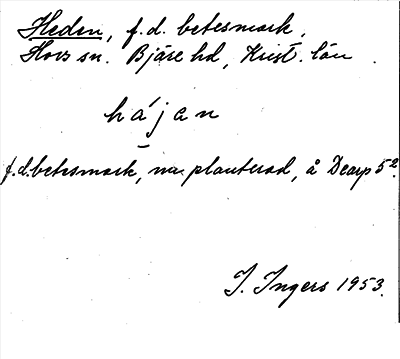 Heden, f.d. betesmark,
Hovs sn. Bjäre hd, Krist. län.
hájan
f.d. betesmark, nu planterad, å Dearp 5².
I. Ingers 1953.